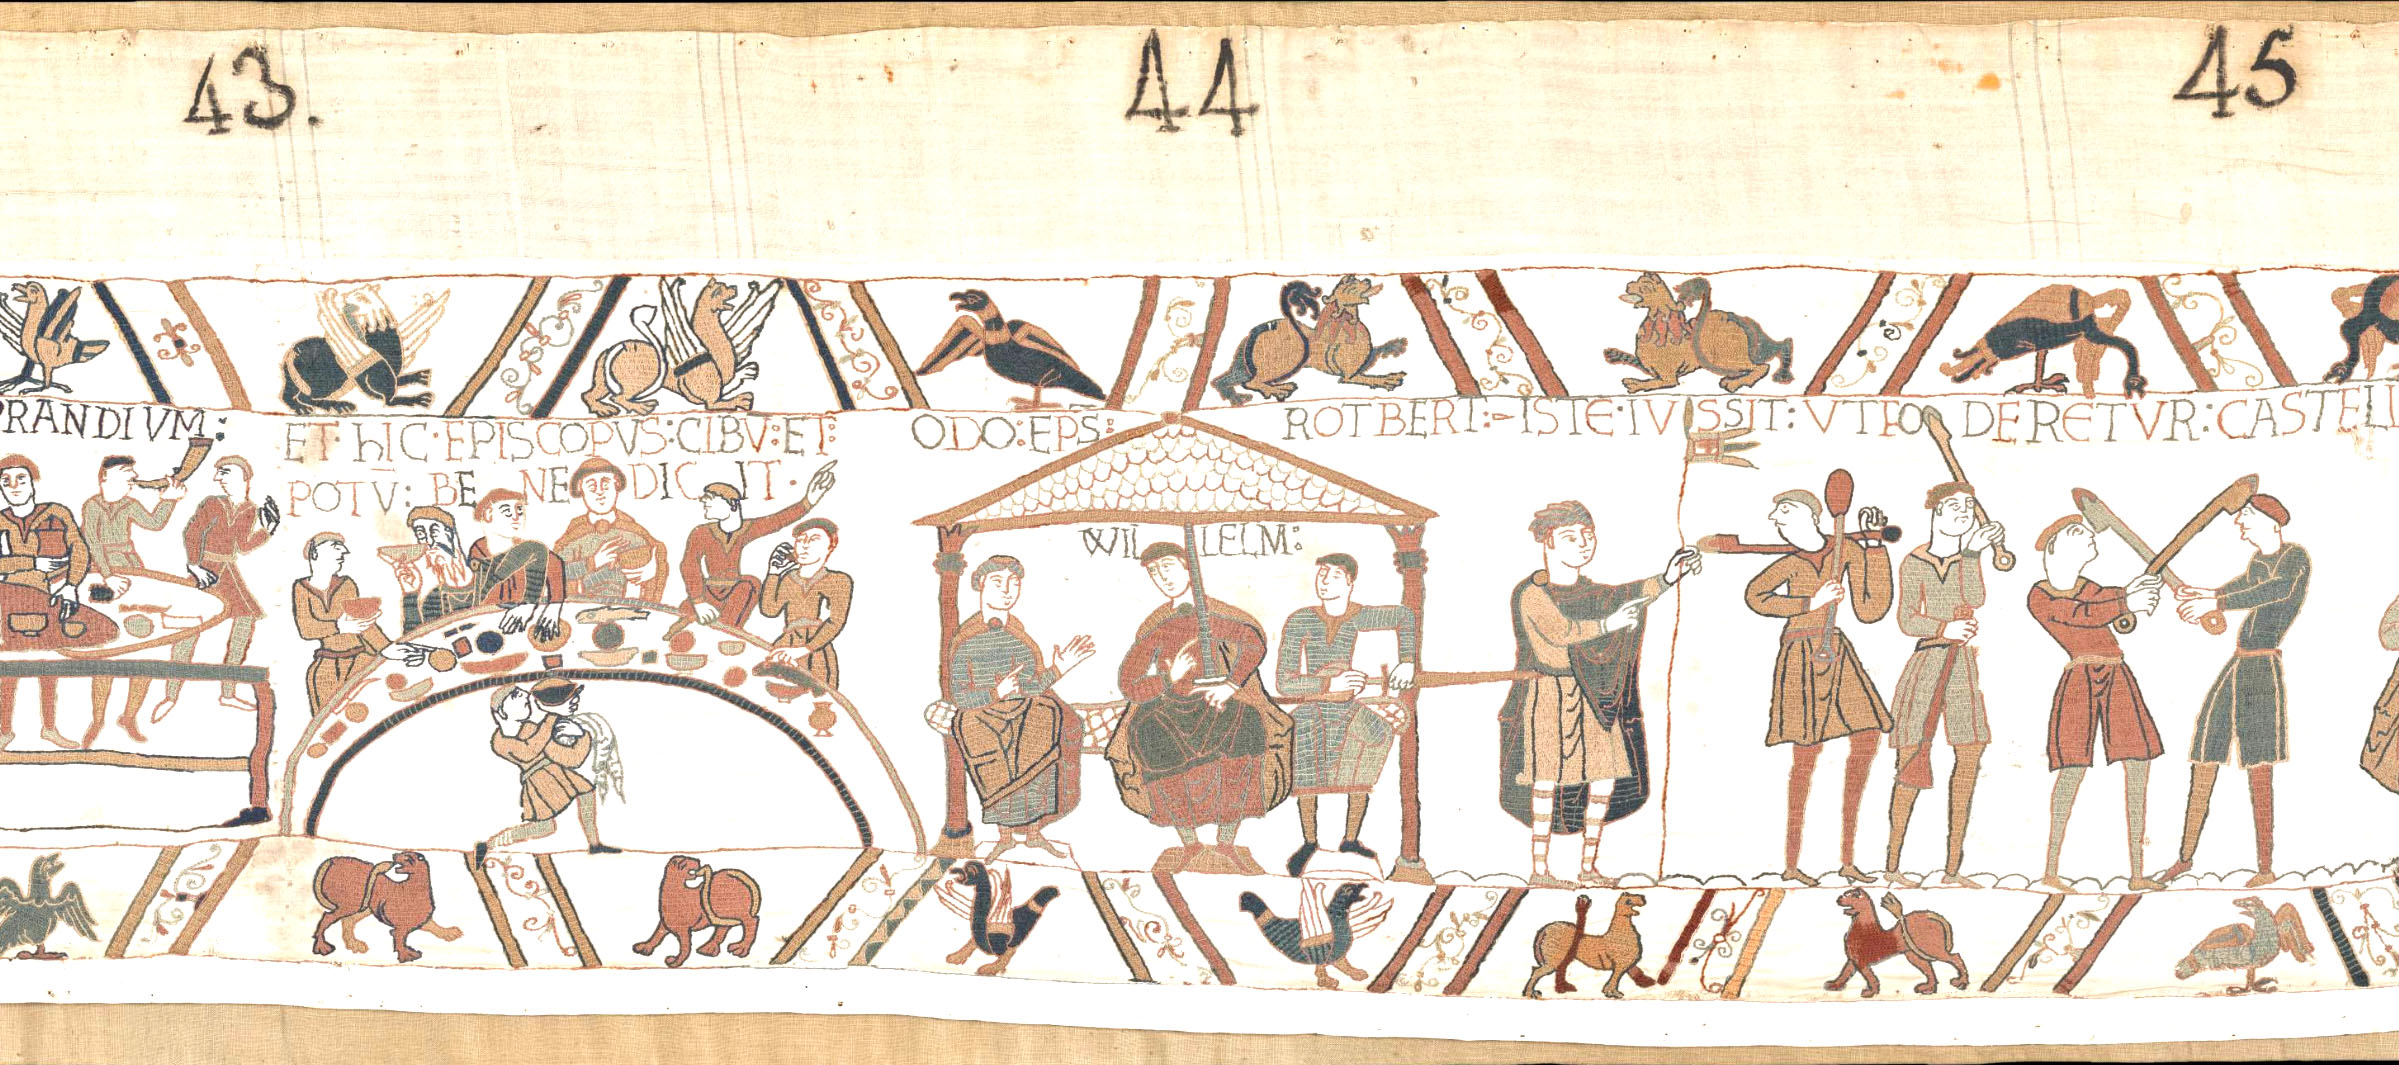 43.
44
45
RANDIVM:
ET·hIC·EPISCOPVS:CIBV̅:ET:
POTV̅: BENEDICIT·
ODO:EPS̅:
WILLELM:
ROTBERT:-ISTE·IVSSIT: VTFODERETVR: CASTELL